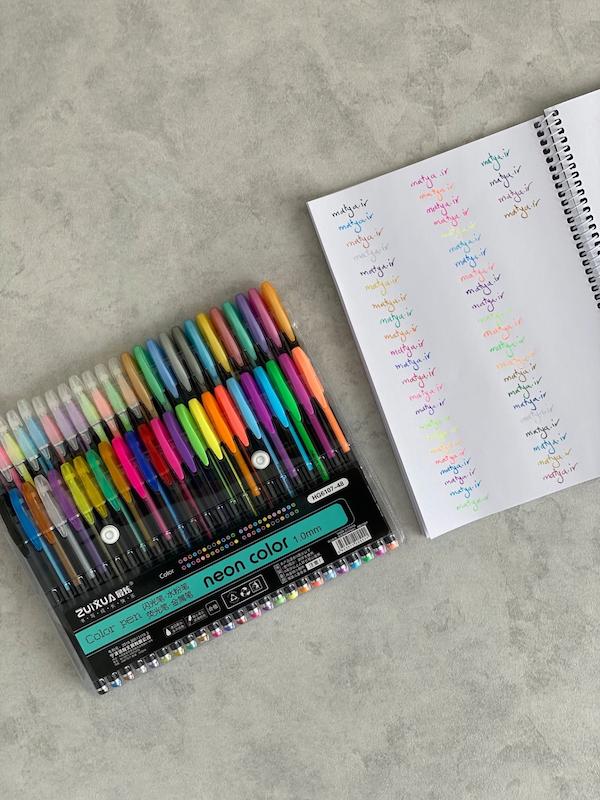 matya.ir
matya.ir
matya.ir
matya.ir
matya.ir
matya.ir
matya.ir
matya.ir
matya.ir
matya.ir
matya.ir
matya.ir
matya.ir
matya.ir
matya.ir
matya.ir
matya.ir
matya.ir
matya.ir
matya.ir
matya.ir
matya.ir
matya.ir
matya.ir
matya.ir
matya.ir
matya.ir
matya.ir
matya.ir
matya.ir
matya.ir
matya.ir
matya.ir
matya.ir
matya.ir
matya.ir
matya.ir
matya.ir
matya.ir
matya.ir
matya.ir
matya.ir
matya.ir
matya.ir
matya.ir
matya.ir
matya.ir
matya.ir
HG6187-48
Color
neon color 1.0mm
ZUiXUA
Color pen 闪光笔·水粉笔
荧光笔·金属笔